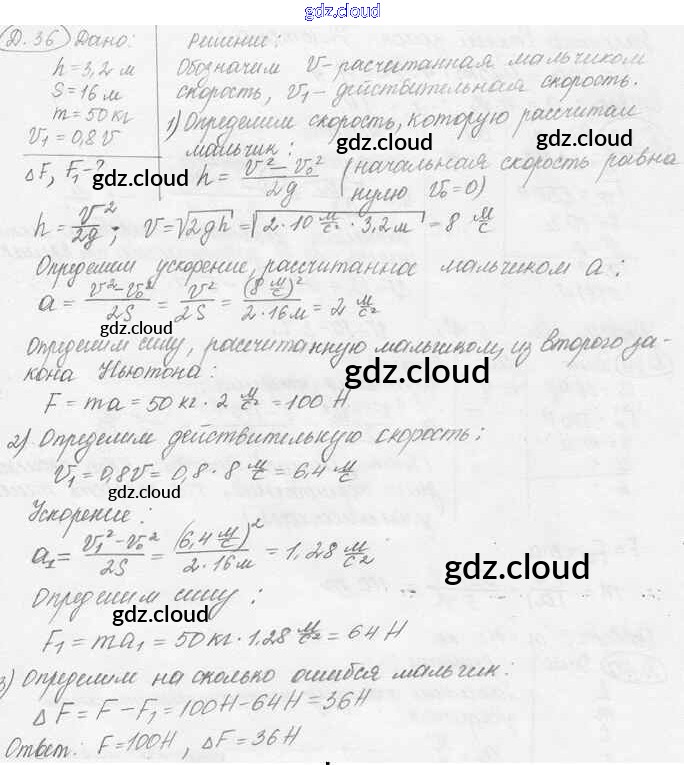 gdz.cloud
Д. 36 Дано: Решение:
h = 3,2 м Обозначим v – расчитанная мальчиком
S = 16 м скорость, v₁ – действительная скорость.
m = 50 кг 1) Определим скорость, которую рассчитал
v₁ = 0,8 v мальчик:
gdz.cloud
gdz.cloud
ΔF, F₁ – ? h = (v² – v₀²)/2g (начальная скорость равна
нулю v₀ = 0)
gdz.cloud
gdz.cloud
h = v²/2g; v = √2gh = √2·10 м/с²·3,2 м = 8 м/с
Определим ускорение, рассчитанное мальчиком a:
a = (v² – v₀²)/2S = v²/2S = (8 м/с)²/2·16 м = 2 м/с²
gdz.cloud
Определим силу, рассчитанную мальчиком, из второго за-
кона Ньютона:
gdz.cloud
F = ma = 50 кг · 2 м/с² = 100 Н
2) Определим действительную скорость:
v₁ = 0,8v = 0,8 · 8 м/с = 6,4 м/с
gdz.cloud
Ускорение:
a₁ = (v₁² – v₀²)/2S = (6,4 м/с)²/2·16 м = 1,28 м/с²
gdz.cloud
Определим силу:
gdz.cloud
F₁ = ma₁ = 50 кг · 1,28 м/с² = 64 Н
3) Определим на сколько ошибся мальчик:
ΔF = F – F₁ = 100 Н – 64 Н = 36 Н
Ответ: F = 100 Н, ΔF = 36 Н
gdz.cloud